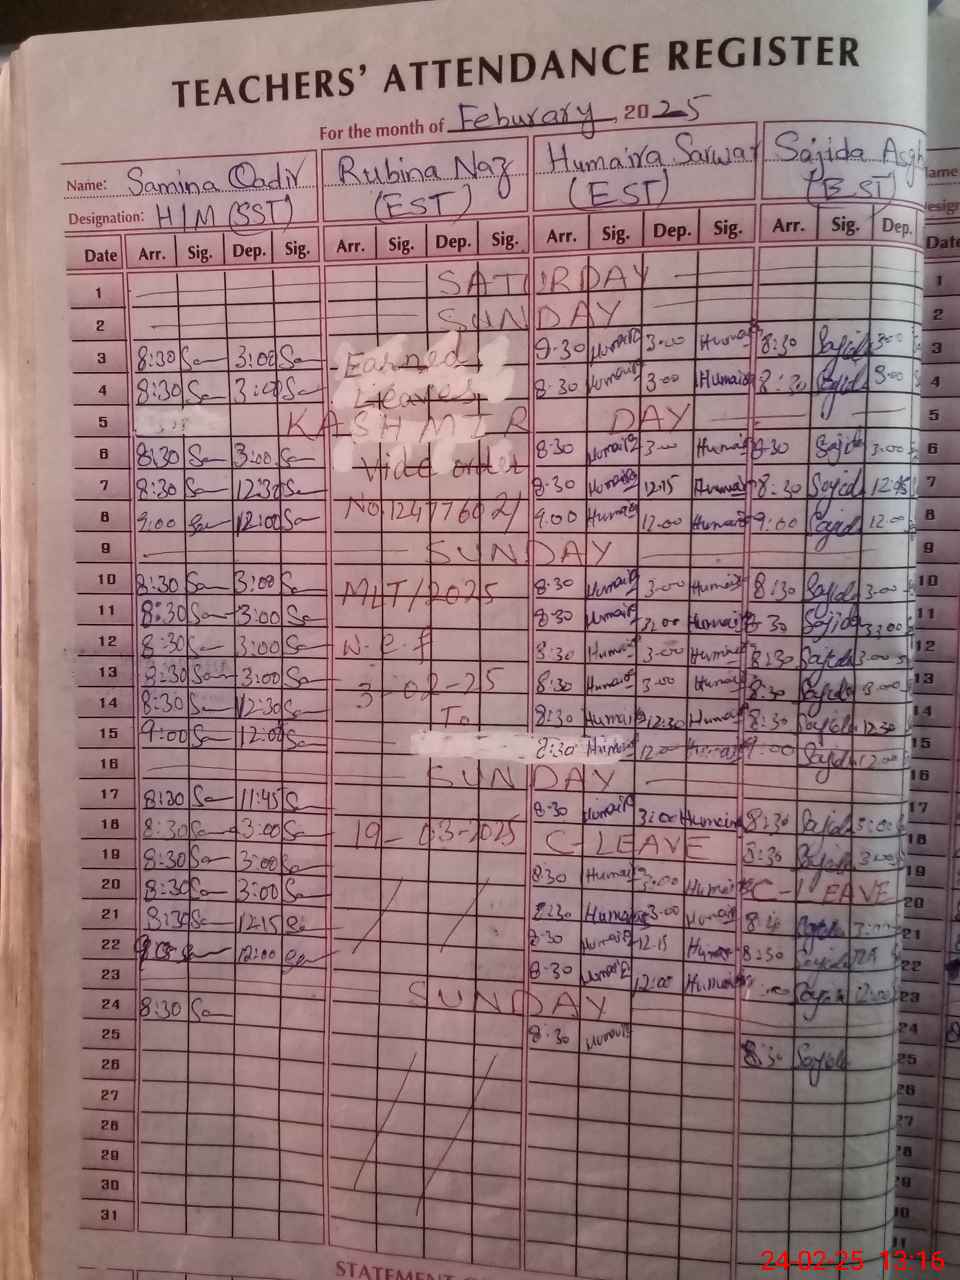 TEACHERS' ATTENDANCE REGISTER
For the month of Feburary, 2025
Name: Samina Qadir Rubina Naz Humaira Sarwar Sajida
Designation: H/M (SST) (EST) (EST) (EST)
Date Arr. Sig. Dep. Sig. Arr. Sig. Dep. Sig. Arr. Sig. Dep. Sig. Arr. Sig. Dep. Date
1 SATURDAY 1
2 SUNDAY 2
3 8:30 Sa 3:00 Sa Earned 8:30 Humaira 3:00 Humaira 8:30 Sajida 3:00 3
4 8:30 Sa 3:00 Sa Leaves 8:30 Humaira 3:00 Humaira 8:30 Sajida 3:00 4
5 KASHMIR DAY 5
6 8:30 Sa 3:00 Sa Vide order 8:30 Humaira 3:00 Humaira 8:30 Sajida 3:00 6
7 8:30 Sa 12:30 Sa 8:30 Humaira 12:15 Humaira 8:30 Sajida 12:15 7
8 9:00 Sa 12:00 Sa No 12477602/ 9:00 Humaira 12:00 Humaira 9:00 Sajida 12:00 8
9 SUNDAY 9
10 8:30 Sa 3:00 Sa MLT/2025 8:30 Humaira 3:00 Humaira 8:30 Sajida 3:00 10
11 8:30 Sa 3:00 Sa 8:30 Humaira 3:00 Humaira 8:30 Sajida 3:00 11
12 8:30 Sa 3:00 Sa w.e.f 8:30 Humaira 3:00 Humaira 8:30 Sajida 3:00 12
13 8:30 Sa 3:00 Sa 3-02-25 8:30 Humaira 3:00 Humaira 8:30 Sajida 3:00 13
14 8:30 Sa 12:30 Sa To 8:30 Humaira 12:30 Humaira 8:30 Sajida 12:30 14
15 9:00 Sa 12:00 Sa 8:30 Humaira 12:00 Humaira 9:00 Sajida 12:00 15
16 SUNDAY 16
17 8:30 Sa 11:45 Sa 8:30 Humaira 3:00 Humaira 8:30 Sajida 3:00 17
18 8:30 Sa 3:00 Sa 19-03-2025 C-LEAVE 8:30 Sajida 3:00 18
19 8:30 Sa 3:00 Sa 8:30 Humaira 3:00 Humaira C-LEAVE 19
20 8:30 Sa 3:00 Sa 8:30 Humaira 3:00 Humaira Sajida 3:00 20
21 8:30 Sa 12:15 Sa 8:30 Humaira 12:15 Humaira 8:30 Sajida 21
22 Sa 12:00 Sa 8:30 Humaira 12:00 Humaira Sajida 12:00 22
23 SUNDAY 23
24 8:30 Sa 8:30 Humaira 8:30 Sajida 24
25 25
26 26
27 27
28 28
29 29
30
31
STATEMENT
24-02-25 13:16